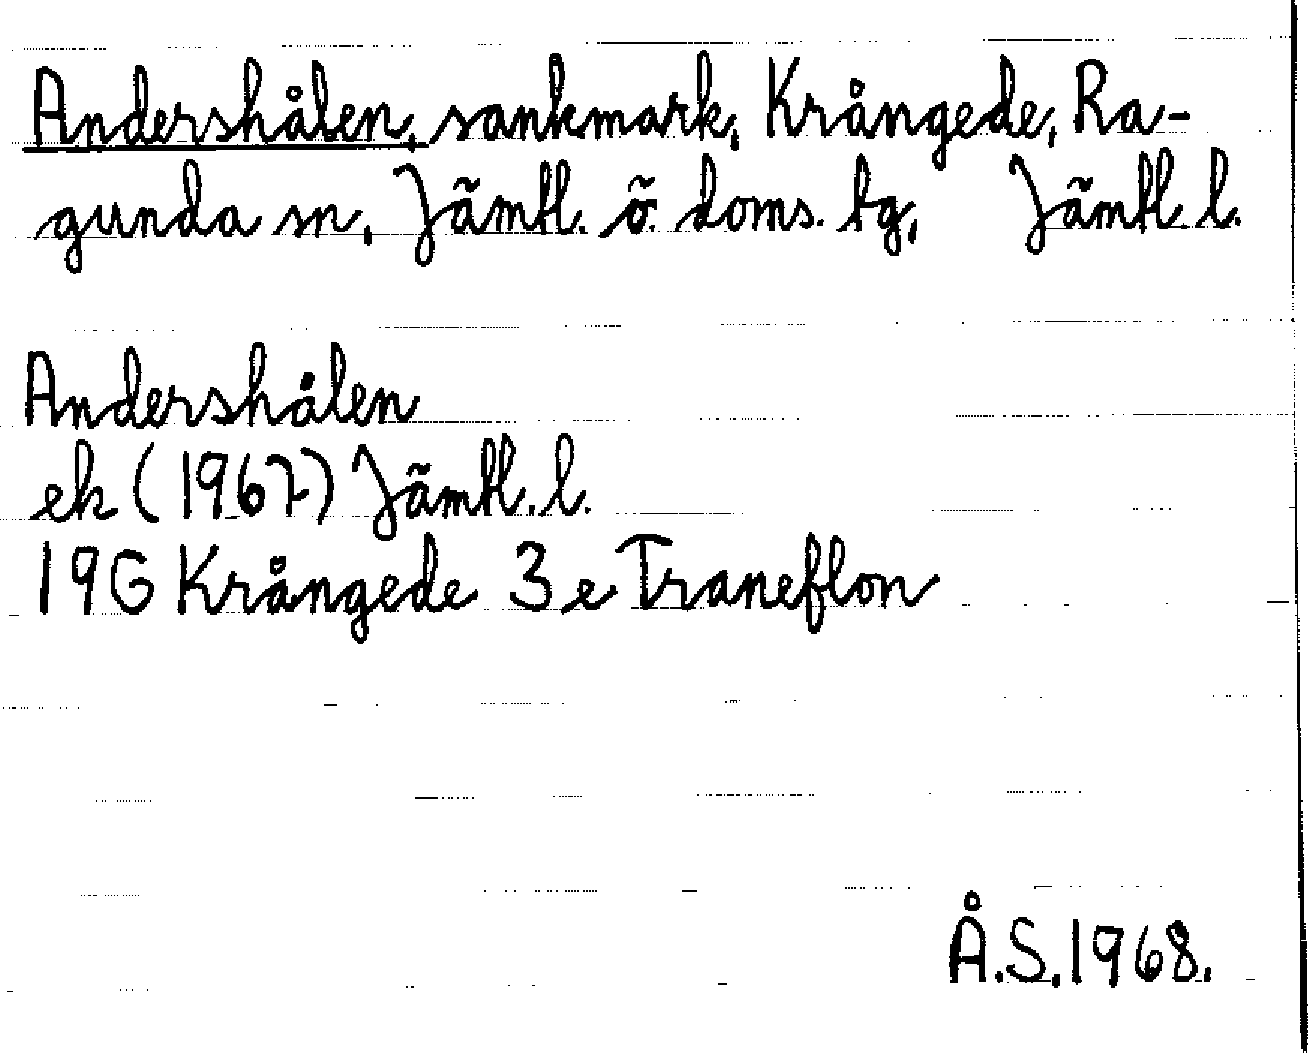 Andershålen, sankmark, Krångede, Ra-
gunda sn, Jämtl. ö. doms. tg, Jämtl. l.
Andershålen
ek (1967) Jämtl. l.
19G Krångede 3e Traneflon
Å.S. 1968.